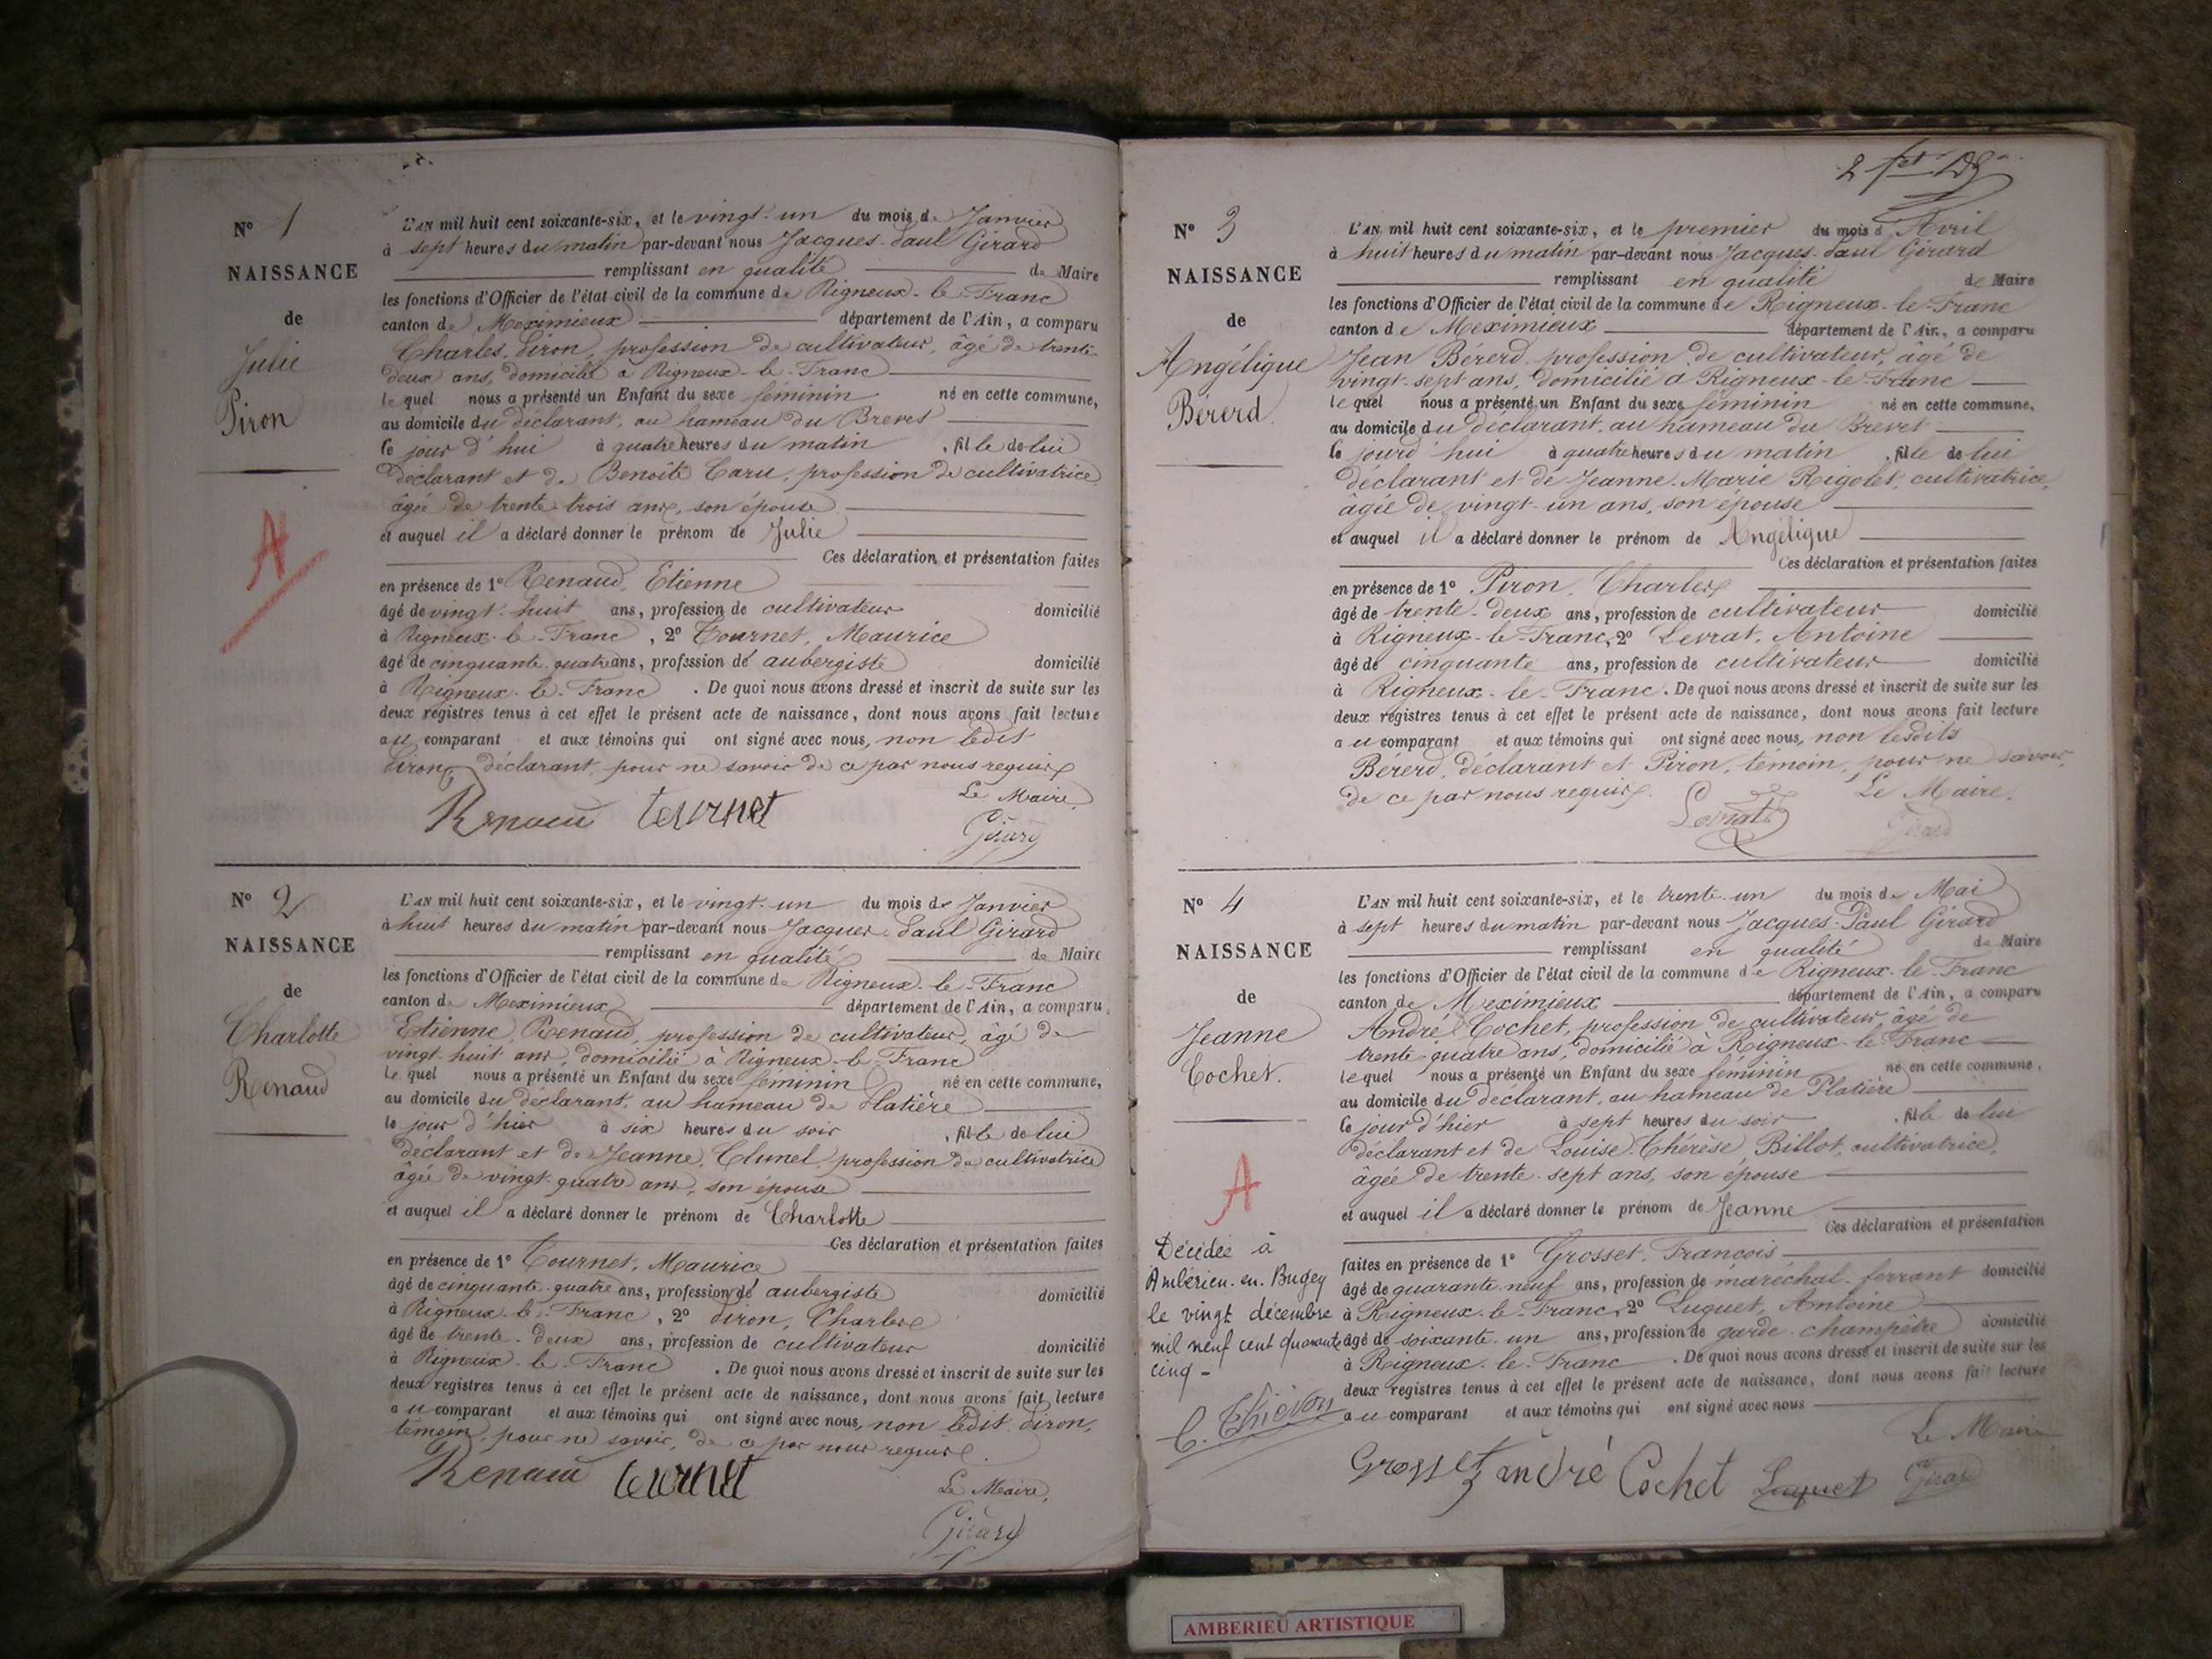 Nº 1
NAISSANCE
de
Julie
Piron
A
L'AN mil huit cent soixante-six, et le vingt-un du mois de Janvier
à sept heures du matin par-devant nous Jacques-Paul Girard
remplissant en qualité de Maire
les fonctions d'Officier de l'état civil de la commune de Rigneux-le-Franc
canton de Meximieux département de l'Ain, a comparu
Charles Piron, profession de cultivateur, âgé de trente-
deux ans, domicilié à Rigneux-le-Franc
lequel nous a présenté un Enfant du sexe féminin né en cette commune,
au domicile du déclarant, au hameau du Brevet
ce jour d'hui à quatre heures du matin, fille de lui
déclarant et de Benoîte Caru, profession de cultivatrice
âgée de trente trois ans, son épouse
et auquel il a déclaré donner le prénom de Julie
Ces déclaration et présentation faites
en présence de 1º Renaud, Etienne
âgé de vingt-huit ans, profession de cultivateur domicilié
à Rigneux-le-Franc, 2º Tournet, Maurice
âgé de cinquante-quatre ans, profession de aubergiste domicilié
à Rigneux-le-Franc. De quoi nous avons dressé et inscrit de suite sur les
deux registres tenus à cet effet le présent acte de naissance, dont nous avons fait lecture
au comparant et aux témoins qui ont signé avec nous, non ledit
Piron, déclarant, pour ne savoir de ce par nous requis
Le Maire,
Renaud Tournet Girard
Nº 2
NAISSANCE
de
Charlotte
Renaud
L'AN mil huit cent soixante-six, et le vingt-un du mois de Janvier
à huit heures du matin par-devant nous Jacques-Paul Girard
remplissant en qualité de Maire
les fonctions d'Officier de l'état civil de la commune de Rigneux-le-Franc
canton de Meximieux département de l'Ain, a comparu
Etienne Renaud, profession de cultivateur, âgé de
vingt-huit ans, domicilié à Rigneux-le-Franc
lequel nous a présenté un Enfant du sexe féminin né en cette commune,
au domicile du déclarant, au hameau de Platière
le jour d'hier à six heures du soir, fille de lui
déclarant et de Jeanne Clunel, profession de cultivatrice
âgée de vingt-quatre ans, son épouse
et auquel il a déclaré donner le prénom de Charlotte
Ces déclaration et présentation faites
en présence de 1º Tournet, Maurice
âgé de cinquante-quatre ans, profession de aubergiste domicilié
à Rigneux-le-Franc, 2º Piron, Charles
âgé de trente-deux ans, profession de cultivateur domicilié
à Rigneux-le-Franc. De quoi nous avons dressé et inscrit de suite sur les
deux registres tenus à cet effet le présent acte de naissance, dont nous avons fait lecture
au comparant et aux témoins qui ont signé avec nous, non ledit Piron,
témoin, pour ne savoir, de ce par nous requis.
Renaud Tournet Le Maire,
Girard
2
Nº 3
NAISSANCE
de
Angélique
Bérerd
L'AN mil huit cent soixante-six, et le premier du mois d'Avril
à huit heures du matin par-devant nous Jacques-Paul Girard
remplissant en qualité de Maire
les fonctions d'Officier de l'état civil de la commune de Rigneux-le-Franc
canton de Meximieux département de l'Ain, a comparu
Jean Bérerd, profession de cultivateur, âgé de
vingt-sept ans, domicilié à Rigneux-le-Franc
lequel nous a présenté un Enfant du sexe féminin né en cette commune,
au domicile du déclarant, au hameau du Brevet
ce jourd'hui à quatre heures du matin, fille de lui
déclarant et de Jeanne-Marie Rigolet, cultivatrice,
âgée de vingt-un ans, son épouse
et auquel il a déclaré donner le prénom de Angélique
Ces déclaration et présentation faites
en présence de 1º Piron, Charles
âgé de trente-deux ans, profession de cultivateur domicilié
à Rigneux-le-Franc, 2º Levrat, Antoine
âgé de cinquante ans, profession de cultivateur domicilié
à Rigneux-le-Franc. De quoi nous avons dressé et inscrit de suite sur les
deux registres tenus à cet effet le présent acte de naissance, dont nous avons fait lecture
au comparant et aux témoins qui ont signé avec nous, non lesdits
Bérerd, déclarant et Piron, témoin, pour ne savoir,
de ce par nous requis. Levrat Le Maire,
Girard
Nº 4
NAISSANCE
de
Jeanne
Cochet.
A
Décédée à
Ambérieu-en-Bugey
le vingt décembre
mil neuf cent quarante
cinq -
C. Thiévon
L'AN mil huit cent soixante-six, et le trente-un du mois de Mai
à sept heures du matin par-devant nous Jacques-Paul Girard
remplissant en qualité de Maire
les fonctions d'Officier de l'état civil de la commune de Rigneux-le-Franc
canton de Meximieux département de l'Ain, a comparu
André Cochet, profession de cultivateur, âgé de
trente-quatre ans, domicilié à Rigneux-le-Franc
lequel nous a présenté un Enfant du sexe féminin né en cette commune,
au domicile du déclarant, au hameau de Platière
le jour d'hier à sept heures du soir, fille de lui
déclarant et de Louise-Thérèse Billot, cultivatrice,
âgée de trente-sept ans, son épouse
et auquel il a déclaré donner le prénom de Jeanne
Ces déclaration et présentation
faites en présence de 1º Grosset, François
âgé de quarante-neuf ans, profession de maréchal-ferrant domicilié
à Rigneux-le-Franc, 2º Luquet, Antoine
âgé de soixante-un ans, profession de garde-champêtre domicilié
à Rigneux-le-Franc. De quoi nous avons dressé et inscrit de suite sur les
deux registres tenus à cet effet le présent acte de naissance, dont nous avons fait lecture
au comparant et aux témoins qui ont signé avec nous
Le Maire
Grosset andré Cochet Luquet Girard
AMBERIEU ARTISTIQUE